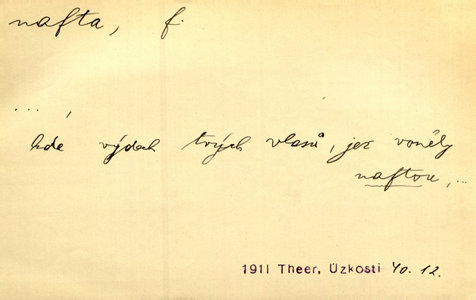 nafta, f.
...,
kde výdech tvých vlasů, jež voněly
naftou,...
1911 Theer, Úzkosti 40.12.